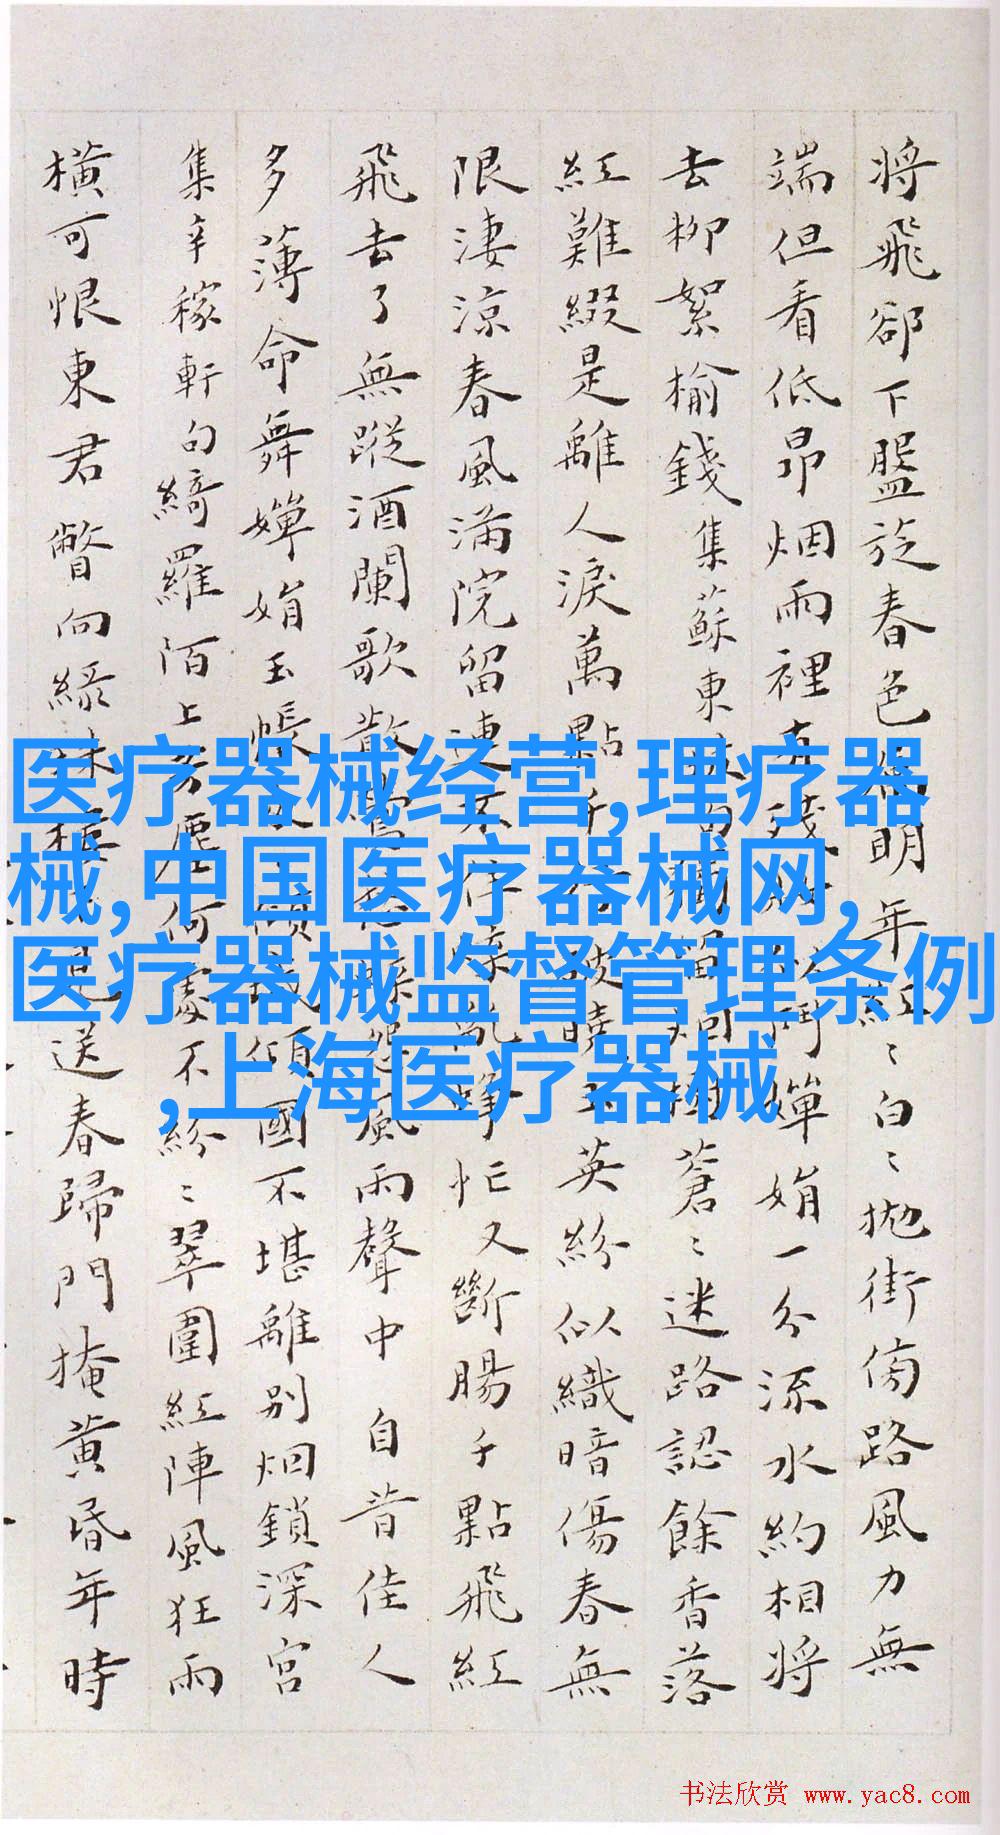 将飛卻下盤旋春色 明年紅〻白〻拋街傍路風力無
端但看低昂烟雨裡 嬋娟一分流水約相將
去柳絮榆錢集蘇東 蒼〻迷路認餘香落
紅難綴是離人淚萬點 英紛似織暗傷春無
限淒涼春風滿院留連 忙又斷腸千點飛紅
飛去了無蹤酒闌歌散 風雨聲中 自昔佳人
多薄命舞嬋娟玉帳 傾國不堪離別烟鎖深宮
集辛稼軒句綺羅陌上 何處不紛〻翠圍紅陣風狂雨
橫可恨東君瞥向緣 送春歸門掩黃昏年時
医疗器械经营,理疗器
械,中国医疗器械网,
医疗器械监督管理条例
,上海医疗器械
书法欣赏 www.yac8.com